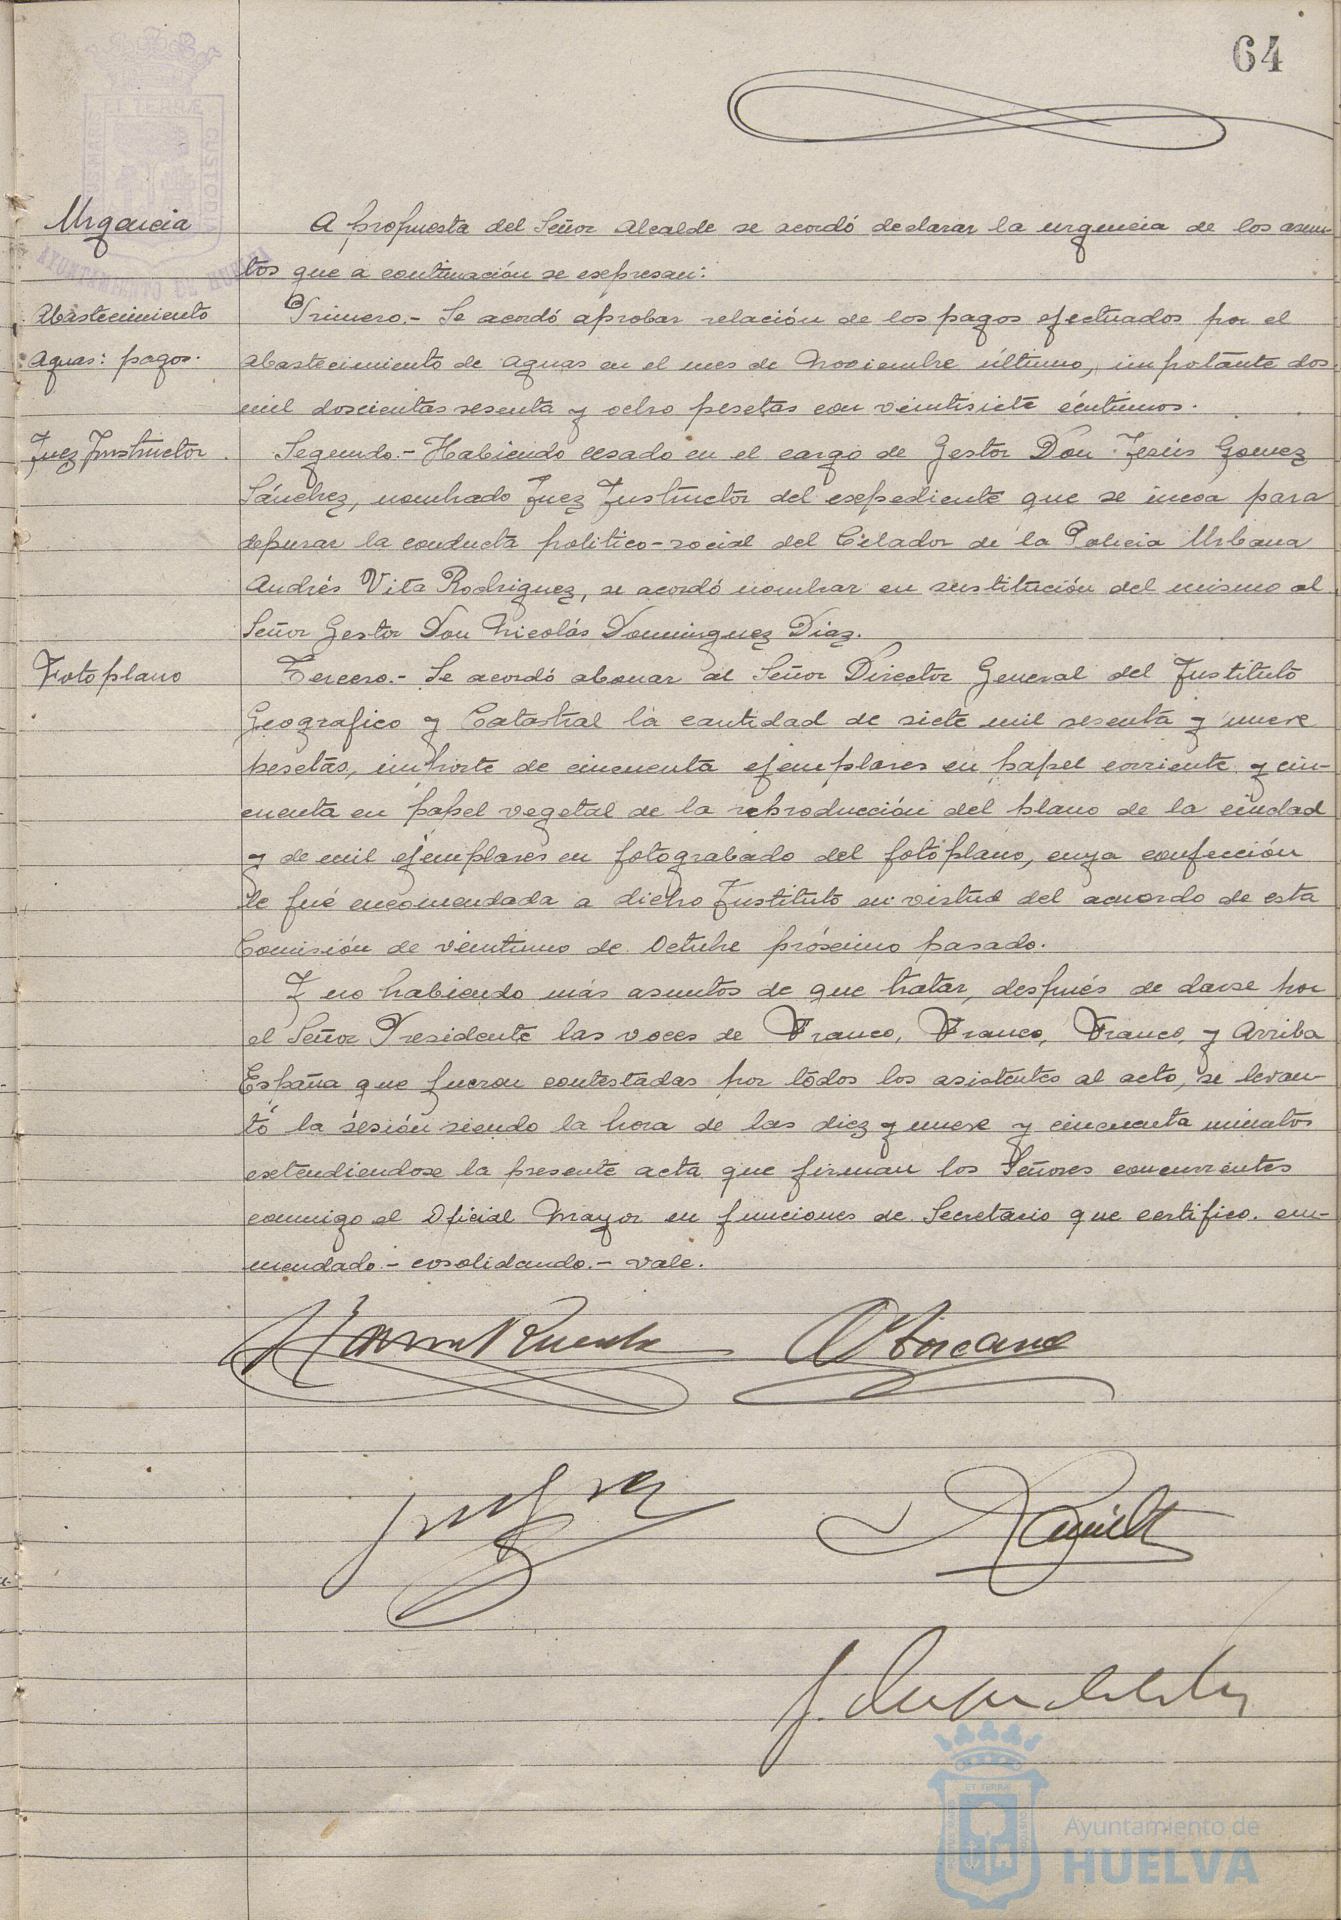 64
ET TERRÆ
CUSTODIA
AYUNTAMIENTO DE HUELVA
Urgencia
A propuesta del Señor Alcalde se acordó declarar la urgencia de los asun-
tos que a continuación se expresan:
Abastecimiento
Aguas: pagos.
Primero.- Se acordó aprobar relación de los pagos efectuados por el
abastecimiento de aguas en el mes de Noviembre último, importante dos
mil doscientas sesenta y ocho pesetas con veintisiete céntimos.
Juez Instructor
Segundo.- Habiendo cesado en el cargo de Gestor Don Jesús Gomez
Sánchez, nombrado Juez Instructor del expediente que se incoa para
depurar la conducta politico-social del Celador de la Policia Urbana
Andrés Vita Rodriguez, se acordó nombrar en sustitución del mismo al
Señor Gestor Don Nicolás Dominguez Diaz.
Fotoplano
Tercero.- Se acordó abonar al Señor Director General del Instituto
Geografico y Catastral la cantidad de siete mil sesenta y nueve
pesetas, importe de cincuenta ejemplares en papel corriente y cin-
cuenta en papel vegetal de la reproducción del plano de la ciudad
y de mil ejemplares en fotograbado del fotoplano, cuya confección
le fué encomendada a dicho Instituto en virtud del acuerdo de esta
Comisión de veintiuno de Octubre próximo pasado.
Y no habiendo más asuntos de que tratar, después de darse por
el Señor Presidente las voces de Franco, Franco, Franco, y Arriba
España que fueron contestadas por todos los asistentes al acto, se levan-
tó la sesión siendo la hora de las diez y nueve y cincuenta minutos
extendiendose la presente acta que firman los Señores concurrentes
conmigo el Oficial Mayor en funciones de Secretario que certifico. en-
mendado.- cosolidando.- vale.
ET TERRÆ
Ayuntamiento de
HUELVA